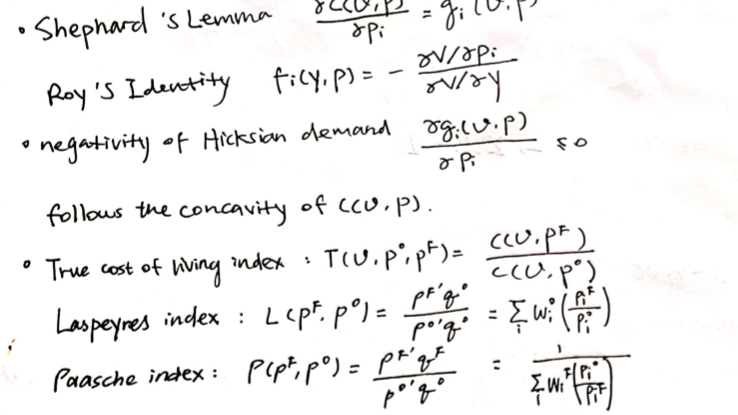 • Shephard's Lemma ∂C(U,P)/∂Pi = gi(U.P)
Roy's Identity fi(y,p) = - ∂V/∂Pi / ∂V/∂y
• negativity of Hicksian demand ∂gi(U.P)/∂Pi ≤ 0
follows the concavity of C(U,P).
• True cost of living index : T(U.P⁰,Pᶠ) = C(U,Pᶠ)/C(U,P⁰)
Laspeyres index : L(Pᶠ,P⁰) = Pᶠ'q⁰/P⁰'q⁰ = Σi Wi⁰(Piᶠ/Pi⁰)
Paasche index : P(Pᶠ,P⁰) = Pᶠ'qᶠ/P⁰'q⁰ = 1/Σi Wiᶠ(Pi⁰/Piᶠ)